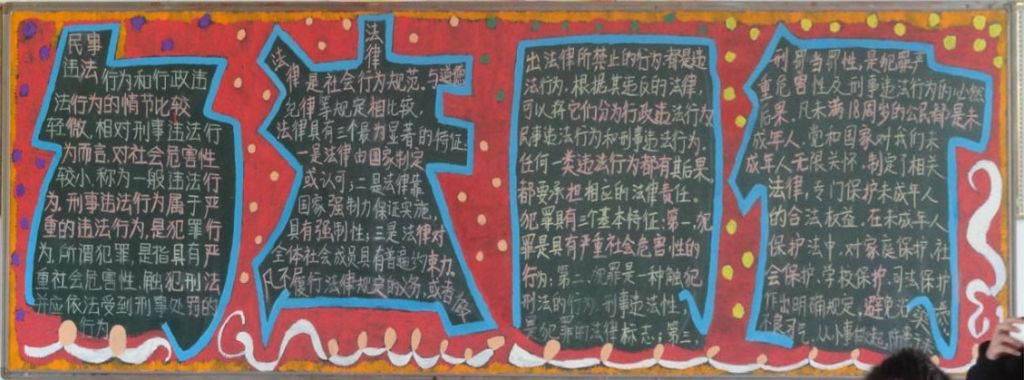 民事
违法行为和行政违
法行为的情节比较
轻微,相对刑事违法行
为而言,对社会危害性
较小,称为一般违法行
为,刑事违法行为属于严
重的违法行为,是犯罪行
为,所谓犯罪,是指具有严
重社会危害性,触犯刑法
并应依法受到刑事处罚的
行为
法律
法律是社会行为规范,与道德
纪律等规定相比较,
法律具有三个最为显著的特征
一是法律由国家制定
或认可,二是法律靠
国家强制力保证实施,
具有强制性,三是法律对
全体社会成员具有普遍约束力,
凡不履行法律规定的义务,或者
出法律所禁止的行为都是违
法行为,根据其违反的法律,
可以将它们分为行政违法行为,
民事违法行为和刑事违法行为,
任何一类违法行为都有其后果
都要承担相应的法律责任,
犯罪具有三个基本特征,第一,犯
罪是具有严重社会危害性的
行为,第二,犯罪是一种触犯
刑法的行为,刑事违法性,
是犯罪的法律标志,第三,
刑罚当罚性,是犯罪严
重危害性及刑事违法行为的必然
结果,凡未满18周岁的公民都是未
成年人,党和国家对我们未
成年人无限关怀,制定了相关
法律,专门保护未成年人
的合法权益,在未成年人
保护法中,对家庭保护,社
会保护,学校保护,司法保护
作出明确规定,避免
从小事做起,